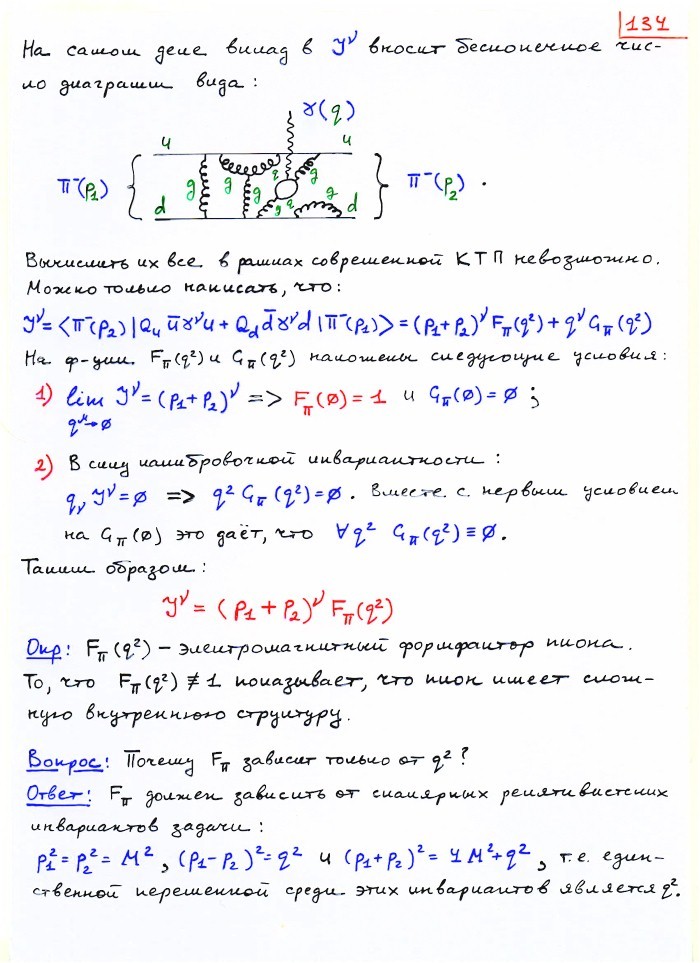 134
На самом деле вклад в J^ν вносит бесконечное чис-
ло диаграмм вида:
γ(q)
u u
π⁻(p₁) g g g q g π⁻(p₂) .
d g q d
Вычислить их все в рамках современной КТП невозможно.
Можно только написать, что:
J^ν = <π⁻(p₂)|Q_u ū γ^ν u + Q_d d̄ γ^ν d |π⁻(p₁)> = (p₁+p₂)^ν F_π(q²) + q^ν G_π(q²)
На ф-ции F_π(q²) и G_π(q²) наложены следующие условия:
1) lim J^ν = (p₁+p₂)^ν => F_π(0) = 1 и G_π(0) = 0 ;
q^μ→0
2) В силу калибровочной инвариантности :
q_ν J^ν = 0 => q² G_π(q²) = 0 . Вместе с первым условием
на G_π(0) это даёт, что ∀ q² G_π(q²) ≡ 0 .
Таким образом :
J^ν = (p₁ + p₂)^ν F_π(q²)
Опр: F_π(q²) – электромагнитный формфактор пиона .
То, что F_π(q²) ≢ 1 показывает, что пион имеет слож-
ную внутреннюю структуру.
Вопрос: Почему F_π зависит только от q² ?
Ответ: F_π должен зависить от скалярных релятивистских
инвариантов задачи :
p₁² = p₂² = M² , (p₁-p₂)² = q² и (p₁+p₂)² = 4M²+q² , т.е. един-
ственной переменной среди этих инвариантов является q².